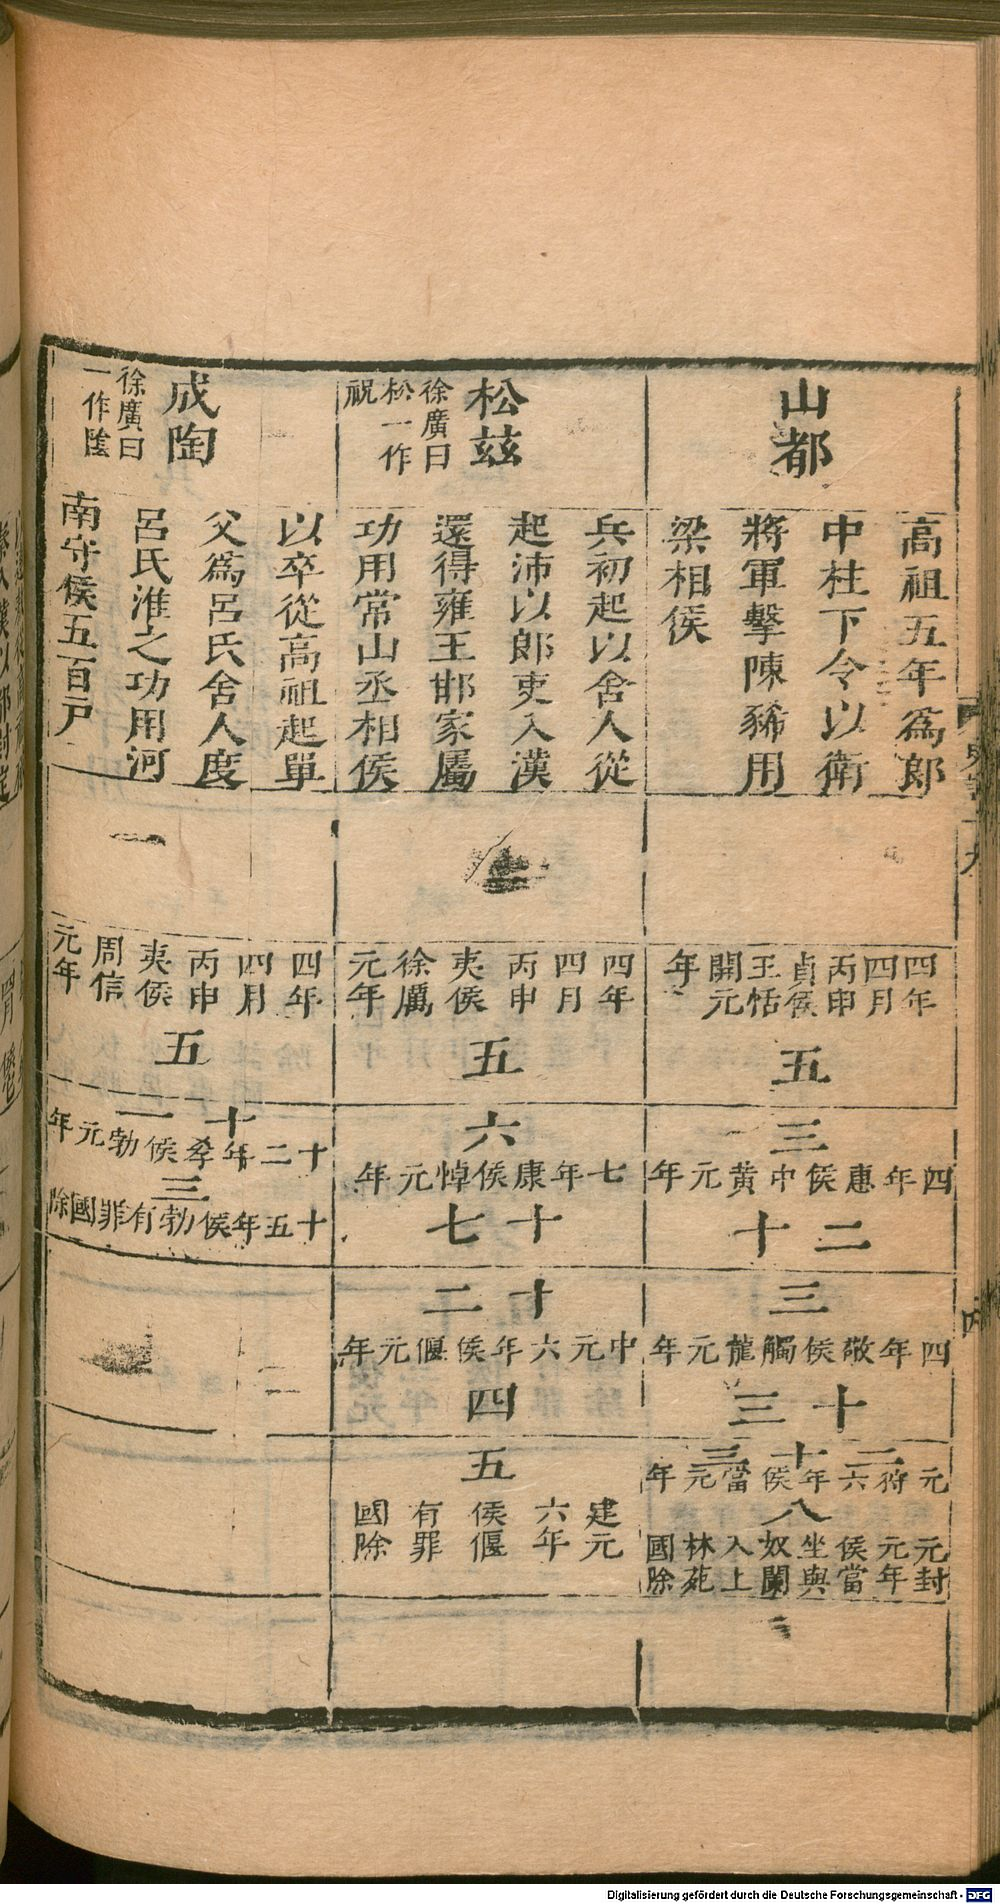 山都
高祖五年爲郎
中柱下令以衛
將軍擊陳豨用
梁相侯
四年
四月
丙申
貞侯
王恬
開元
年
五
三
四年惠侯中黃元年
二十
三
四年敬侯觸龍元年
十三
二十三
元狩六年侯當元年
八
元封
元年
侯當
坐與
奴闌
入上
林苑
國除
松茲
徐廣曰
松一作
祝
兵初起以舍人從
起沛以郎吏入漢
還得雍王邯家屬
功用常山丞相侯
四年
四月
丙申
夷侯
徐厲
元年
五
六
七年康侯悼元年
十七
十二
中元六年侯偃元年
四
五
建元
六年
侯偃
有罪
國除
成陶
徐廣曰
一作陰
以卒從高祖起單
父爲呂氏舍人度
呂氏淮之功用河
南守侯五百戶
四年
四月
丙申
夷侯
周信
元年
五
十一
十二年孝侯勃元年
三
十五年侯勃有罪國除
Digitalisierung gefördert durch die Deutsche Forschungsgemeinschaft - DFG